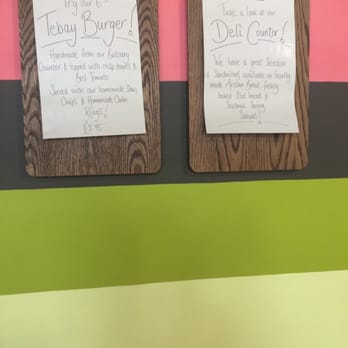 Try our
Tebay Burger!
Handmade from our Butchery
Counter & topped with crisp
Beef Tomato
Served with our homemade Slaw,
Chips & Homemade Onion
Rings!
Take a look at our
Deli Counter!
We have a great Selection
of Sandwiches available on locally
made Artisan Bread, freshly
baked
Seasonal Spring
Salads!